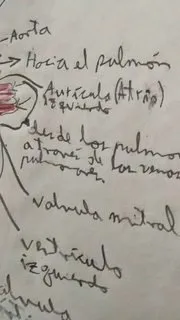 Aorta
Hacia el pulmón
Aurícula (Atrio)
izquierdo
desde los pulmon
a través de las venas
pulmonares
valvula mitral
ventriculo
izquierdo
valvula